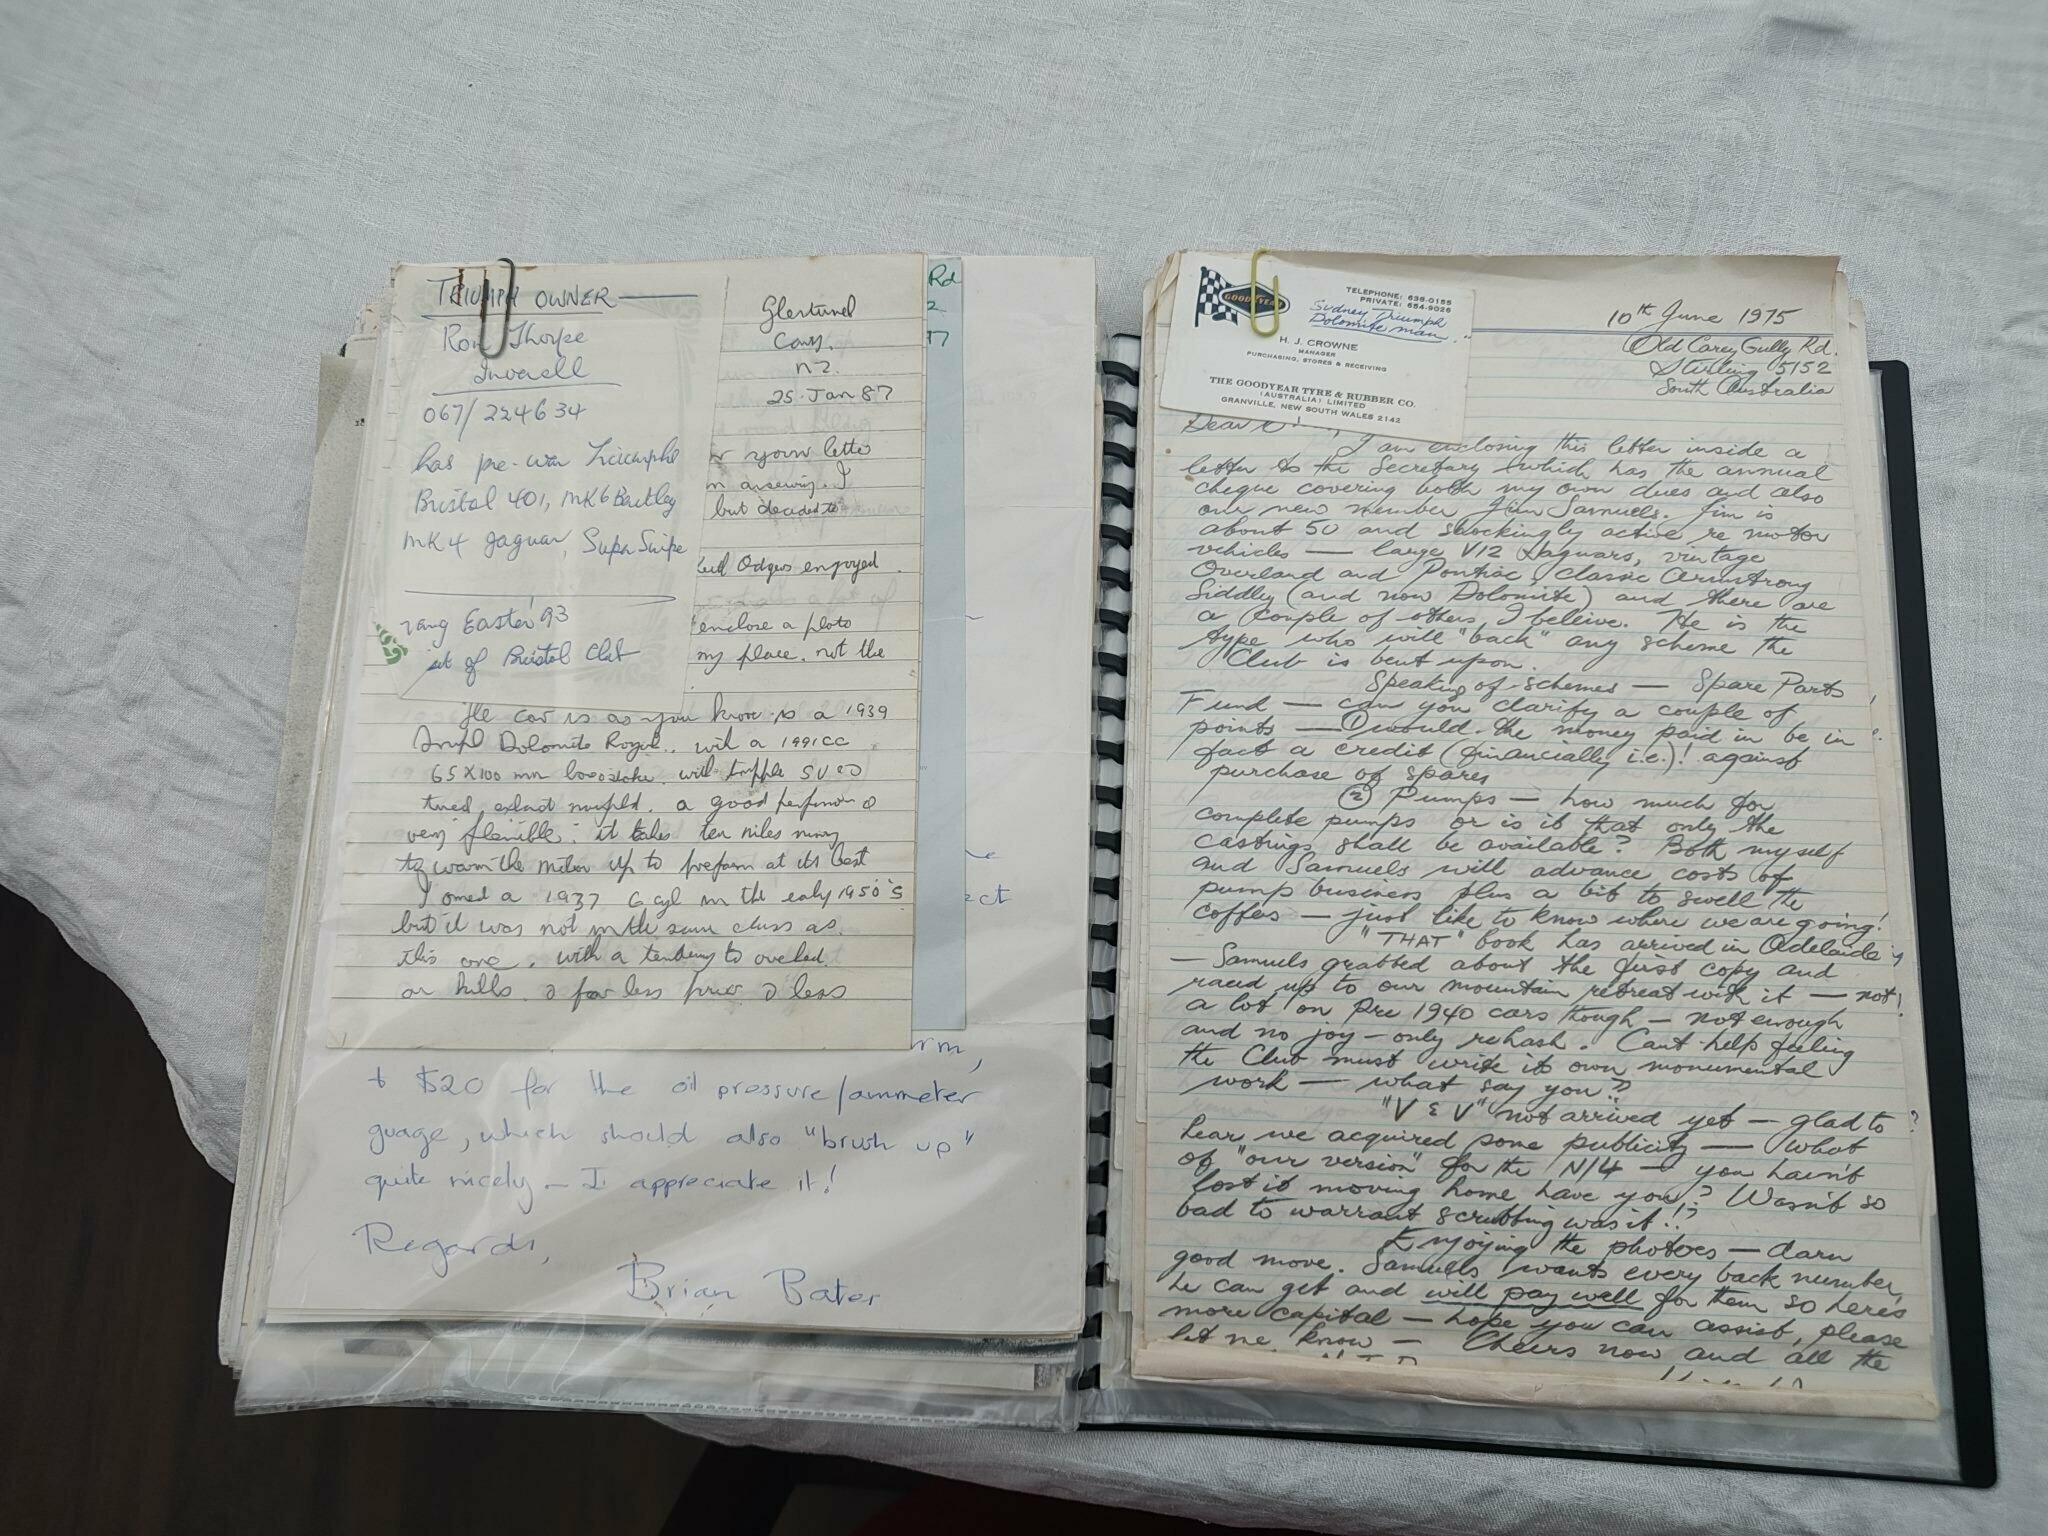 TRIUMPH OWNER
Ron Thorpe
Inverell
067/224634
has pre-war Triumphs
Bristol 401, MK6 Bentley
MK4 Jaguar, Super Snipe
rang Easter '93
of Bristol Club
N.Z.
25 Jan 87
your letter
I
but decided to
Odgers enjoyed
enclose a photo
my place, not the
The car is as you know is a 1939
Dolomite with a 1991cc
65 X 100 mm with tripple SU
tuned, a good
very flexible. it takes ten miles
to warm the up to at its best
I owned a 1937 6 cyl in the early 1950's
but it was not in the same class as
this one, with a tendency to
on hills. less
Rd
2
77
ect
rm,
+ $20 for the oil pressure/ammeter
guage, which should also "brush up"
quite nicely — I appreciate it!
Regards,
Brian Bater
GOODYEAR
TELEPHONE: 638-0155
PRIVATE: 654-9026
Sydney Triumph
Dolomite man.
H. J. CROWNE
MANAGER
PURCHASING, STORES & RECEIVING
THE GOODYEAR TYRE & RUBBER CO.
(AUSTRALIA) LIMITED
GRANVILLE, NEW SOUTH WALES 2142
10th June 1975
Old Carey Gully Rd.
Stirling 5152
South Australia
Dear
I am enclosing this letter inside a
letter to the Secretary which has the annual
cheque covering both my own dues and also
our new member Jim Samuels. Jim is
about 50 and shockingly active re motor
vehicles — large V12 Jaguars, vintage
Overland and Pontiac, classic Armstrong
Siddley (and now Dolomite) and there are
a couple of others I beleive. He is the
type who will "back" any scheme the
Club is bent upon.
Speaking of schemes — Spare Parts
Fund — can you clarify a couple of
points — ① would the money paid in be in
fact a credit (financially i.e.)! against
purchase of spares
② Pumps — how much for
complete pumps or is it that only the
castings shall be available? Both myself
and Samuels will advance costs of
pump business plus a bit to swell the
coffers — just like to know where we are going!
"THAT" book has arrived in Adelaide
— Samuels grabbed about the first copy and
raced up to our mountain retreat with it — not
a lot on Pre 1940 cars though — not enough
and no joy — only rehash. Cant help feeling
the Club must write its own monumental
work — what say you?
"V & V" not arrived yet — glad to
hear we acquired some publicity — what
of "our version" for the N/4 — you hain't
lost it moving home have you? Wasn't so
bad to warrant scrubbing was it!?
Enjoying the photoes — darn
good move. Samuels wants every back number
he can get and will pay well for them so here's
more capital — hope you can assist, please
let me know — Cheers now and all the